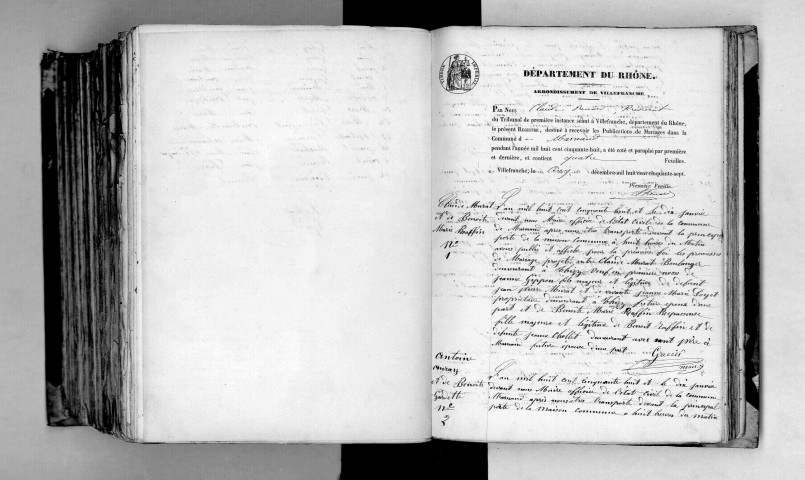 TIMBRE IMPERIAL
DÉPARTEMENT DU RHÔNE.
ARRONDISSEMENT DE VILLEFRANCHE
PAR NOUS Claude
du Tribunal de première instance séant à Villefranche, département du Rhône,
le présent REGISTRE, destiné à recevoir les Publications de Mariages dans la
Commune d Marnand
pendant l'année mil huit cent cinquante-huit, a été coté et paraphé par première
et dernière, et contient quatre Feuilles.
A Villefranche, le décembre mil huit cent cinquante-sept.
Première Feuille
Claude Murat
et de Benoite
Marie Raffin
N°
1
L'an mil huit cent cinquante huit et le dix janvier
devant nous Maire officier de l'état Civil de la commune
de Marnand après nous être transporté devant la principale
porte de la maison commune, à huit heures du Matin
avons publié et affiché pour la première fois les promesses
de Mariage projeté entre Claude Murat Boulanger
demeurant à Thizy Veuf en premières noces de
jeanne fils majeur et légitime de defunt
jean pierre Murat et de vivante jeanne Marie
propriétaire demeurant à Thizy futur epoux d'une
part et de Benoite Marie Raffin Repasseuse
fille majeure et légitime de Benoit Raffin et de
defunte jeanne Chollet demeurant avec son père à
Marnand future epouse d'autre part
maire
Antoine
et de Benoite
N°
2
L'an mil huit cent cinquante huit et le dix janvier
devant nous Maire officier de l'état Civil de la commune
Marnand après nous être transporté devant la principale
porte de la maison commune à huit heures du matin